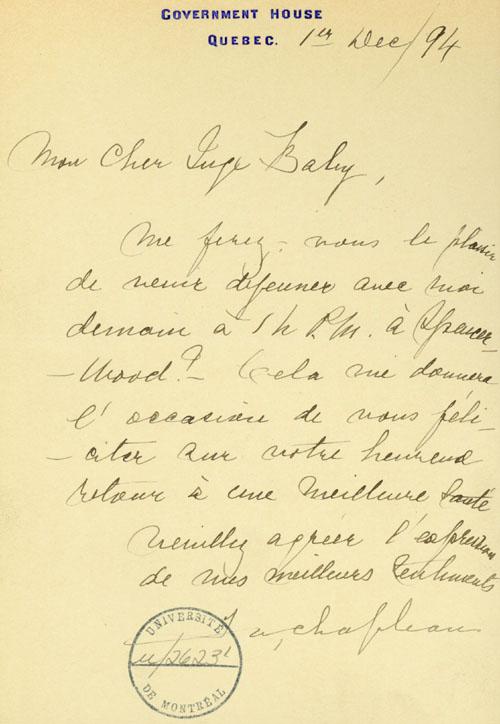 GOVERNMENT HOUSE
QUEBEC. 1er Dec/94
Mon Cher Juge Baby,
Me ferez-vous le plaisir
de venir déjeuner avec moi
demain à 1 h P.M. à Spencer-
-Wood? - Cela me donnera
l'occasion de vous féli-
-citer sur votre heureux
retour à une meilleure santé
Veuillez agréer l'expression
de mes meilleurs sentiments
J. A. Chapleau
UNIVERSITÉ
u/2623
DE MONTRÉAL